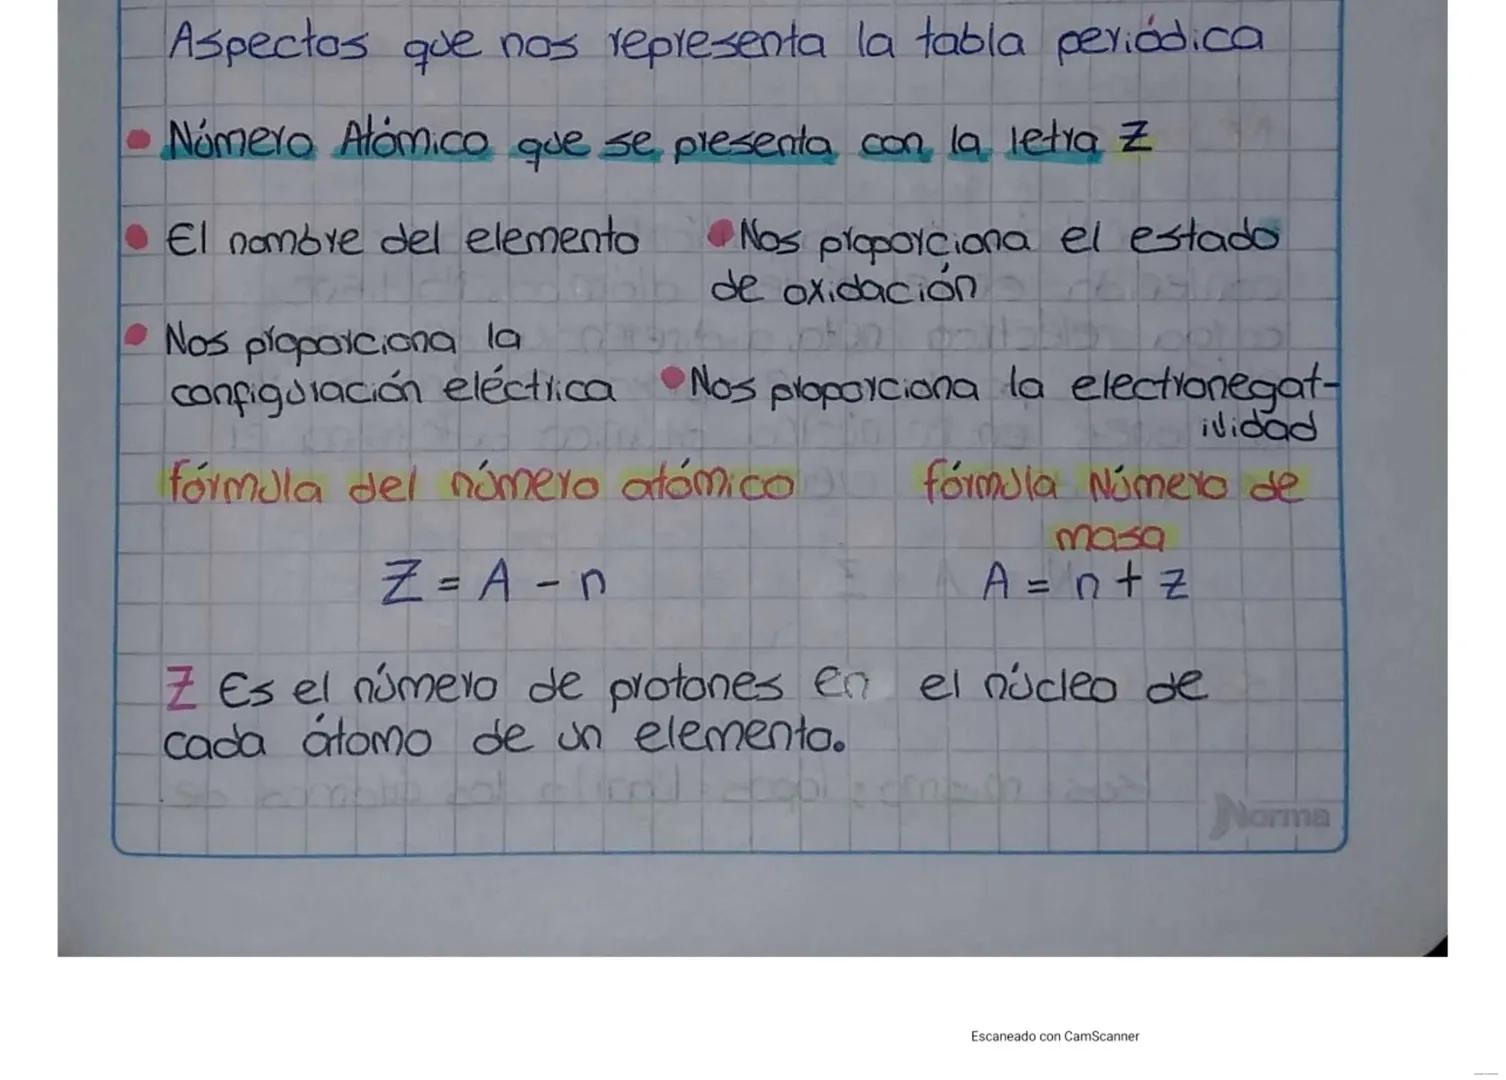 Aspectos que nos representa la tabla periódica
Número Atómico que se presenta con la letra Z
El nombre del elemento
Nos proporciona la
configuración eléctrica
Nos proporciona el estado
de oxidación
Nos proporciona la electronegat-
ividad
fórmula del número atómico
Z = A - n
fórmula Número de
masa
A = n + z
Z Es el número de protones en el núcleo de
cada átomo de un elemento.
Norma
Escaneado con CamScanner